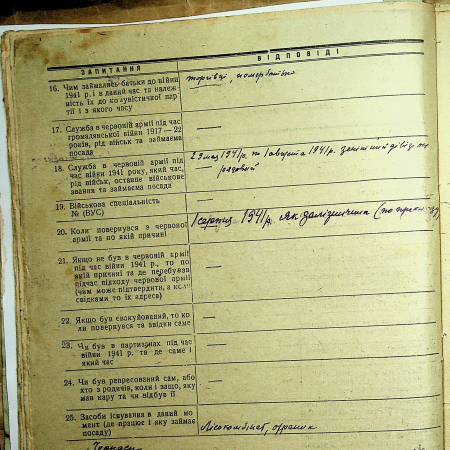 ЗАПИТАННЯ
ВІДПОВІДІ
16. Чим займались батьки до війни
1941 р. і в даний час та належ-
ність їх до комуністичної пар-
тії і з якого часу
торгівці, помер батько
17. Служба в червоній армії під час
громадянської війни 1917—22
років, рід військ та займаєма
посада
—
18. Служба в червоній армії під
час війни 1941 року, який час,
рід військ, останнє військове
звання та займаєма посада
29 мая 1941 р. по 1 августа 1941 р. зенітний дивізіон
— рядовий
19. Військова спеціальність
№ (ВУС)
—
20. Коли повернувся з червоної
армії та по якій причині
1 серпня 1941 р. Як залізничник
21. Якщо не був в червоній армії
під час війни 1941 р., то по
якій причині та де перебував
підчас відходу червоної армії
(чим може підтвердити, а кол
свідками то їх адреса)
—
22. Якщо був евокуйований, то ко-
ли повернувся та звідки саме
—
23. Чи був в партизанах під час
війни 1941 р. та де саме і
який час
—
24. Чи був репресований сам, або
хто з родичів, коли і защо, яку
мав кару та чи відбув її
—
25. Засоби існування в даний мо-
мент (де працює і яку займає
посаду)
Лісокомбінат, охранник